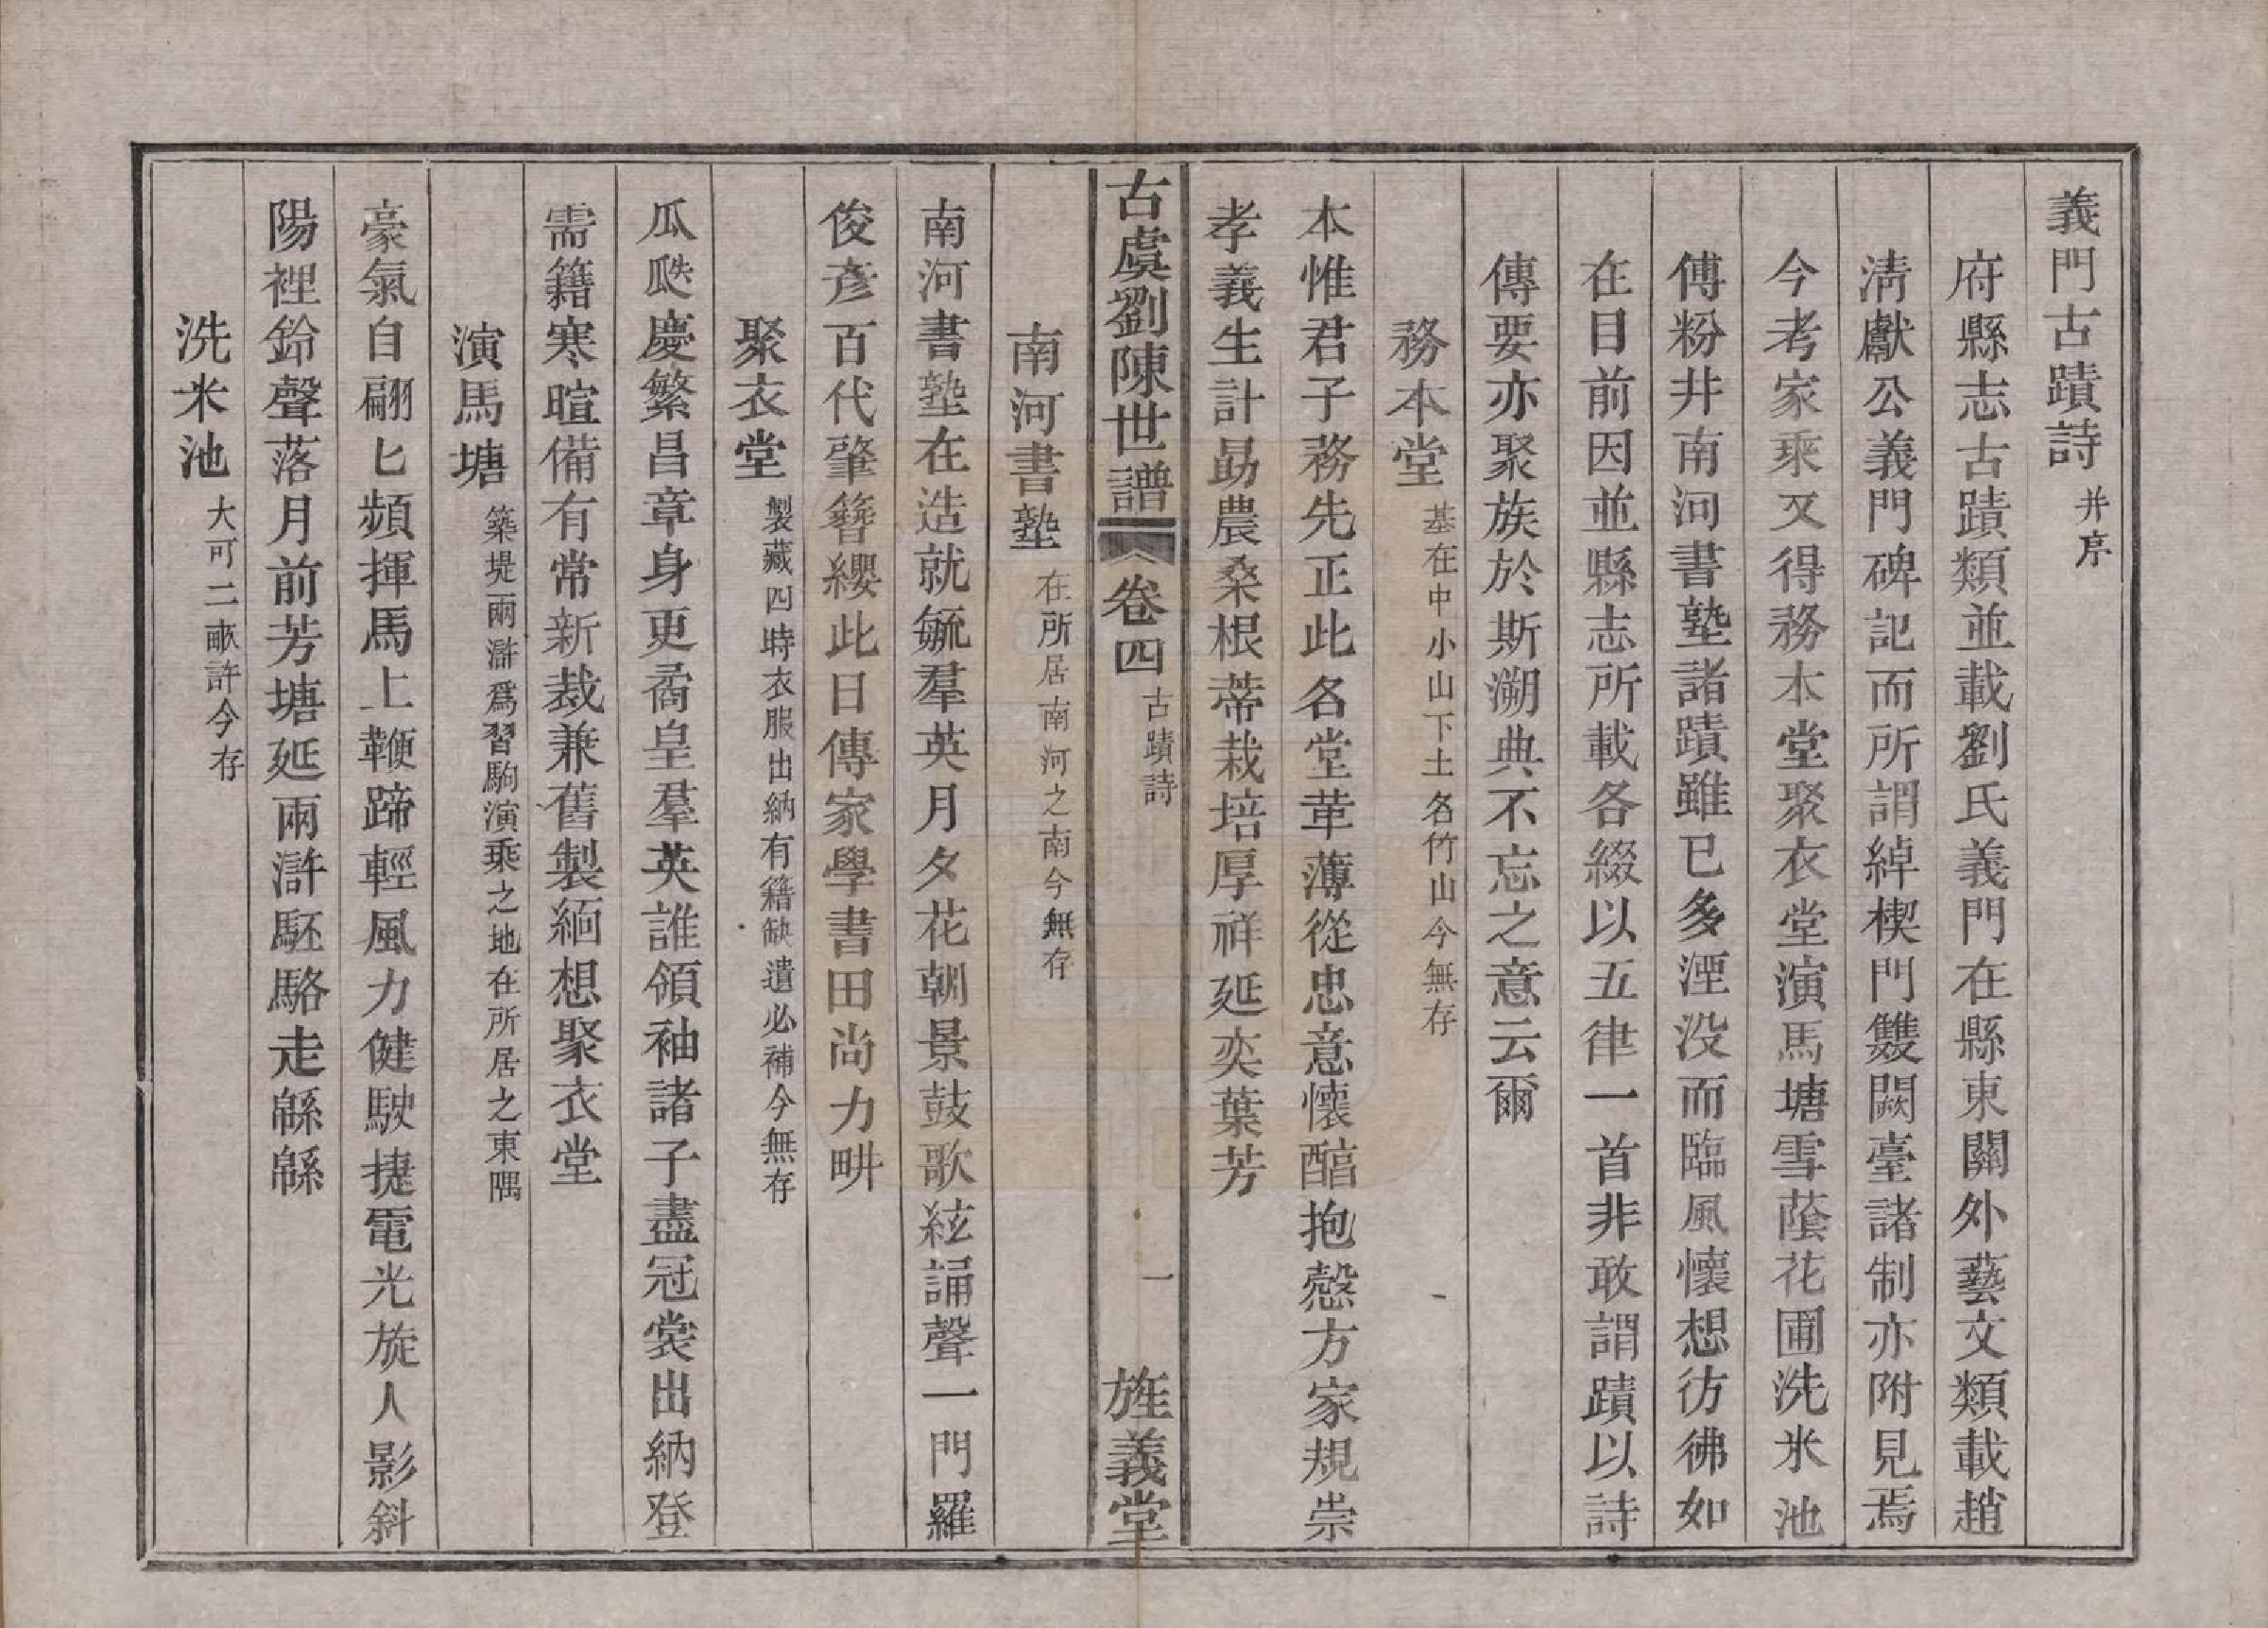 義門古蹟詩并序
府縣志古蹟類並載劉氏義門在縣東關外藝文類載趙
淸獻公義門碑記而所謂綽楔門雙闕臺諸制亦附見焉
今考家乘又得務本堂聚衣堂演馬塘雪蔭花圃洗米池
傅粉井南河書塾諸蹟雖已多湮没而臨風懷想彷彿如
在目前因並縣志所載各綴以五律一首非敢謂蹟以詩
傳要亦聚族於斯溯典不忘之意云爾
務本堂基在中小山下土名竹山今無存
本惟君子務先正此名堂革薄從忠意懷醕抱慤方家規崇
孝義生計勗農桑根蒂栽培厚祥延奕葉芳
古虞劉陳世譜 卷四 古蹟詩 一 旌義堂
南河書塾在所居南河之南今無存
南河書塾在造就毓羣英月夕花朝景鼓歌絃誦聲一門羅
俊彥百代肇簪纓此日傳家學書田尚力畊
聚衣堂製藏四時衣服出納有籍缺遺必補今無存
瓜瓞慶繁昌章身更矞皇羣英誰領袖諸子盡冠裳出納登
需籍寒暄備有常新裁兼舊製緬想聚衣堂
演馬塘築堤兩滸爲習駒演乘之地在所居之東隅
豪氣自翩匕頻揮馬上鞭蹄輕風力健駛捷電光旋人影斜
陽裡鈴聲落月前芳塘延兩滸駓駱走緜緜
洗米池大可二畝許今存